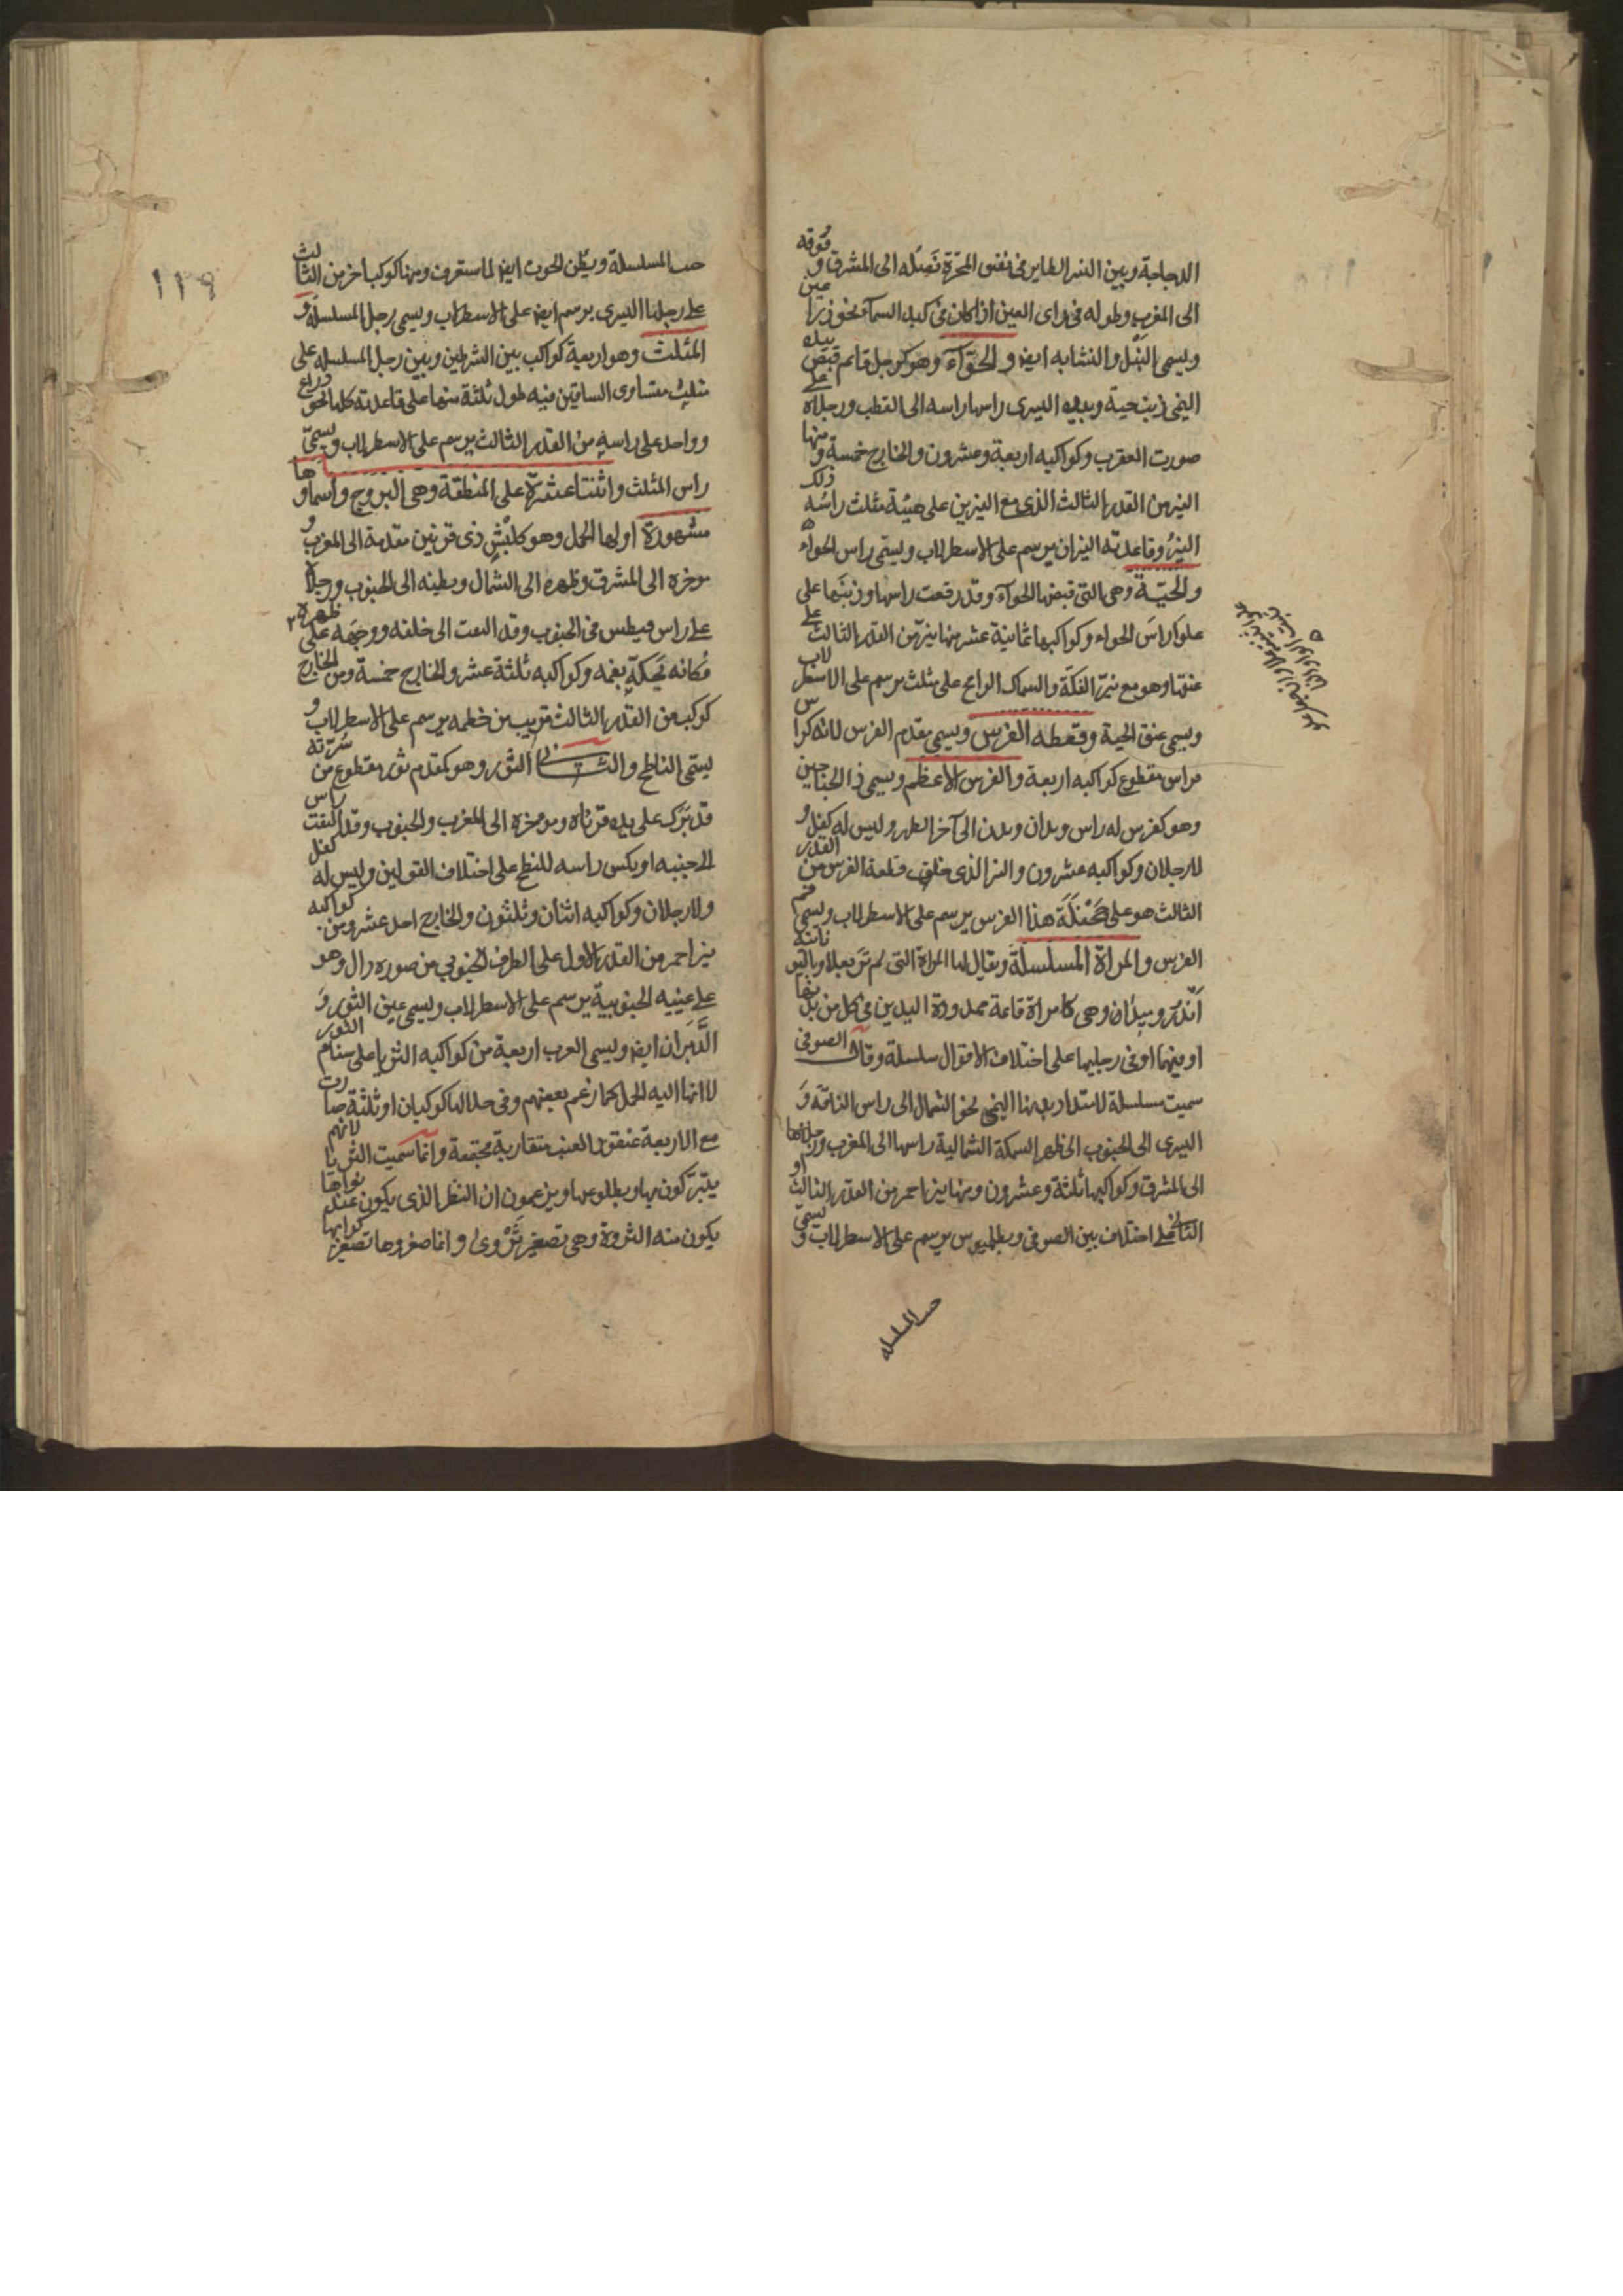 الدجاجة وبين النسر الطاير في نفس المجرة نصله الى المشرق وفوقه
الى المغرب وطوله في راى العين اذا كان في كبد السماء نحو ذراعين
ويسمى النبل والنشابه ايضا والحوآء وهو كرجل قايم قبض بيده
اليمنى ذنب حية وبيده اليسرى راسها راسه الى القطب ورجلاه على
صورت العقرب وكواكبه اربعة وعشرون والخارج خمسة ومنها
النير من القدر الثالث الذى مع النيرين على هيئة مثلث راسه ذلك
النيرُ وقاعدته النيران يرسم على الاسطرلاب ويسمى راس الحواء
والحيّة وهى التى قبضها الحوآء وقد رفعت راسها وذنبها على
علو راس الحواء وكواكبها ثمانية عشر منها نير من القدر الثالث على
عنقها وهو مع نير الفكة والسماك الرامح على مثلث يرسم على الاسطرلاب
ويسمى عنق الحية وقطعه الفرس ويسمى مقدم الفرس لانه كراس
فراس مقطوع كواكبه اربعة والفرس الاعظم ويسمى ذا الجناحين
وهو كفرس له راس ويدان وبدن الى آخر الظهر وليس له كفل و
لا رجلان وكواكبه عشرون والنير الذى خلف قطعة الفرس من القدر
الثالث هو على جحفلة هذا الفرس يرسم على الاسطرلاب ويسمى فم
الفرس والمراة المسلسلة ويقال لها المراة التى لم تر بعلا وباليونانية
اندروميدان وهى كامراة قائمة ممدودة اليدين في كل من يديها
او بينهما او في رجليها على اختلاف الاقوال سلسلة وقال الصوفى
سميت مسلسلة لامتداد يدها اليمنى نحو الشمال الى راس الناقة و
اليسرى الى الجنوب الى ظهر السمكة الشمالية راسها الى المغرب ورجلاها
الى المشرق وكواكبها ثلثة وعشرون ومنها نير احمر من القدر الثالث او
الثانى على اختلاف بين الصوفى وبطلميوس يرسم على الاسطرلاب ويسمى
جنب المسلسله
جنب المسلسلة وبطن الحوت ايضا لما ستعرف ومنها كوكب اخر من الثالث
على رجلها اليسرى يرسم ايضا على الاسطرلاب ويسمى رجل المسلسلة و
المثلث وهو اربعة كواكب بين الشرطين وبين رجل المسلسله على
مثلث متساوى الساقين فيه طول ثلثة منها على قاعدته كلها نحو ذراع
وواحد على راسه من القدر الثالث يرسم على الاسطرلاب ويسمى
راس المثلث واثنتا عشرة على المنطقة وهى البروج واسماوها
مشهورة اولها الحمل وهو كبش ذى قرنين مقدمه الى المغرب و
موخره الى المشرق وظهره الى الشمال وبطنه الى الجنوب ورجلاه
على راس قيطس في الجنوب وقد التفت الى خلفه ووجهه على ظهره
فكانه يحكه بفمه وكواكبه ثلثة عشر والخارج خمسة ومن الخارج
كوكب من القدر الثالث قريب من خطمه يرسم على الاسطرلاب و
يسمى الناطح والثانى الثور وهو كمقدم ثور مقطوع من سرّته
قد برك على يده قرناه وموخره الى المغرب والجنوب وقد التفت راس
الى جنبه او نكس راسه للنطح على اختلاف القولين وليس له كفل
ولا رجلان وكواكبه اثنان وثلثون والخارج احد عشر ومن كواكبه
نير احمر من القدر الاول على الطرف الجنوبي من صوره دال وهو
على عينيه الجنوبية يرسم على الاسطرلاب ويسمى عين الثور و
الدَّبَران ايضا ويسمى العرب اربعة من كواكبه الثريا على سنام الثور
لا انها الية الحمل كما زعم بعضهم وفى خلالها كوكبان او ثلثة صارت
مع الاربعة عنقود العنب متقاربة مجتمعة وانما سميت الثريا لانهم
يتبركون بها وبطلوعها ويزعمون ان المطر الذى يكون عند نواها
يكون منه الثروة وهى تصغير ثروى وانما صغروها تصغير كواكبها
١١٩